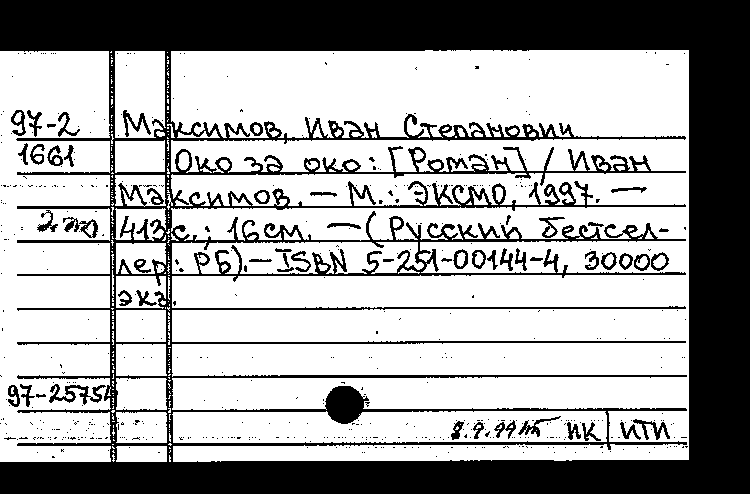 97-2 Максимов, Иван Степанович
1661 Око за око: [Роман] / Иван
Максимов. — М.: ЭКСМО, 1997. —
413 с.; 16 см. — (Русский бестсел-
лер: РБ). — ISBN 5-251-00144-4, 30000
экз.
97-25754
НК ИТИ